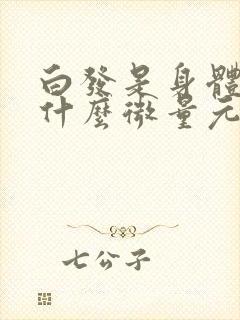 白發是身體
什麼微量元
七公子